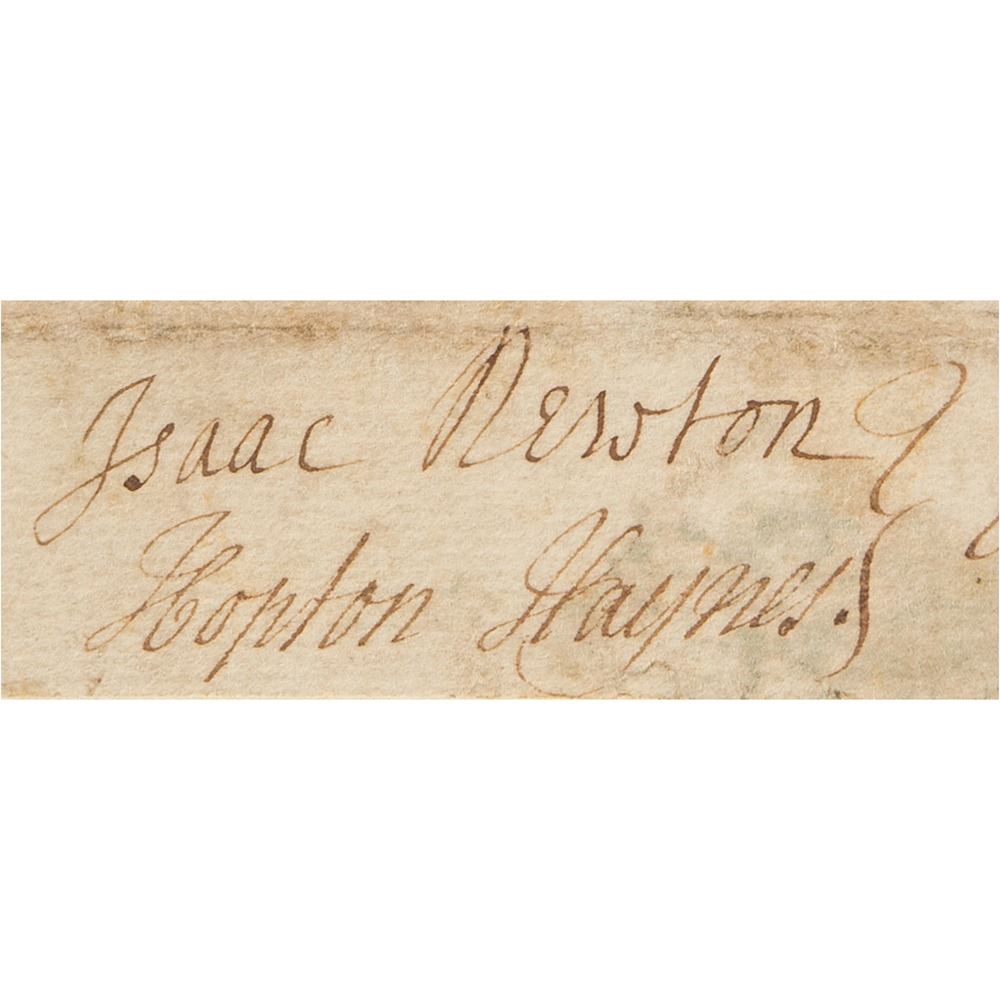 Isaac Newton
Hopton Haynes.